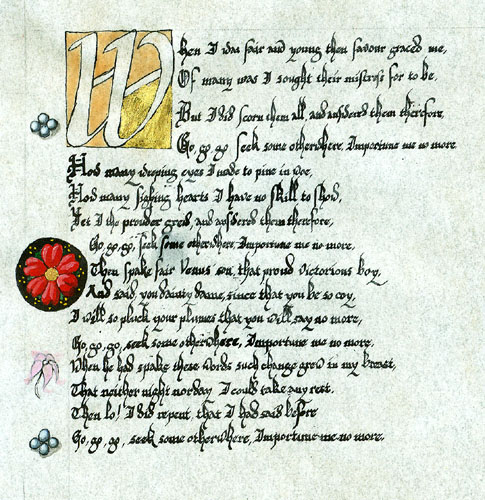 When I was fair and young then favour graced me,
Of many was I sought their mistress for to be.
But I did scorn them all, and answered them therefore,
Go, go, go seek some otherwhere, Importune me no more
How many weeping eyes I made to pine in woe,
How many sighing hearts I have no skill to show,
Yet I the prouder grew, and answered them therefore,
Go, go, go, seek some otherwhere, Importune me no more,
Then spake fair Venus son, that proud victorious boy,
And said, you dainty dame, since that you be so coy,
I will so pluck your plumes that you will say no more,
Go, go, go, seek some otherwhere, Importune me no more.
When he had spake these words such change grew in my breast,
That neither night nor day, I could take any rest.
Then lo! I did repent, that I had said before
Go, go, go, seek some otherwhere, Importune me no more.